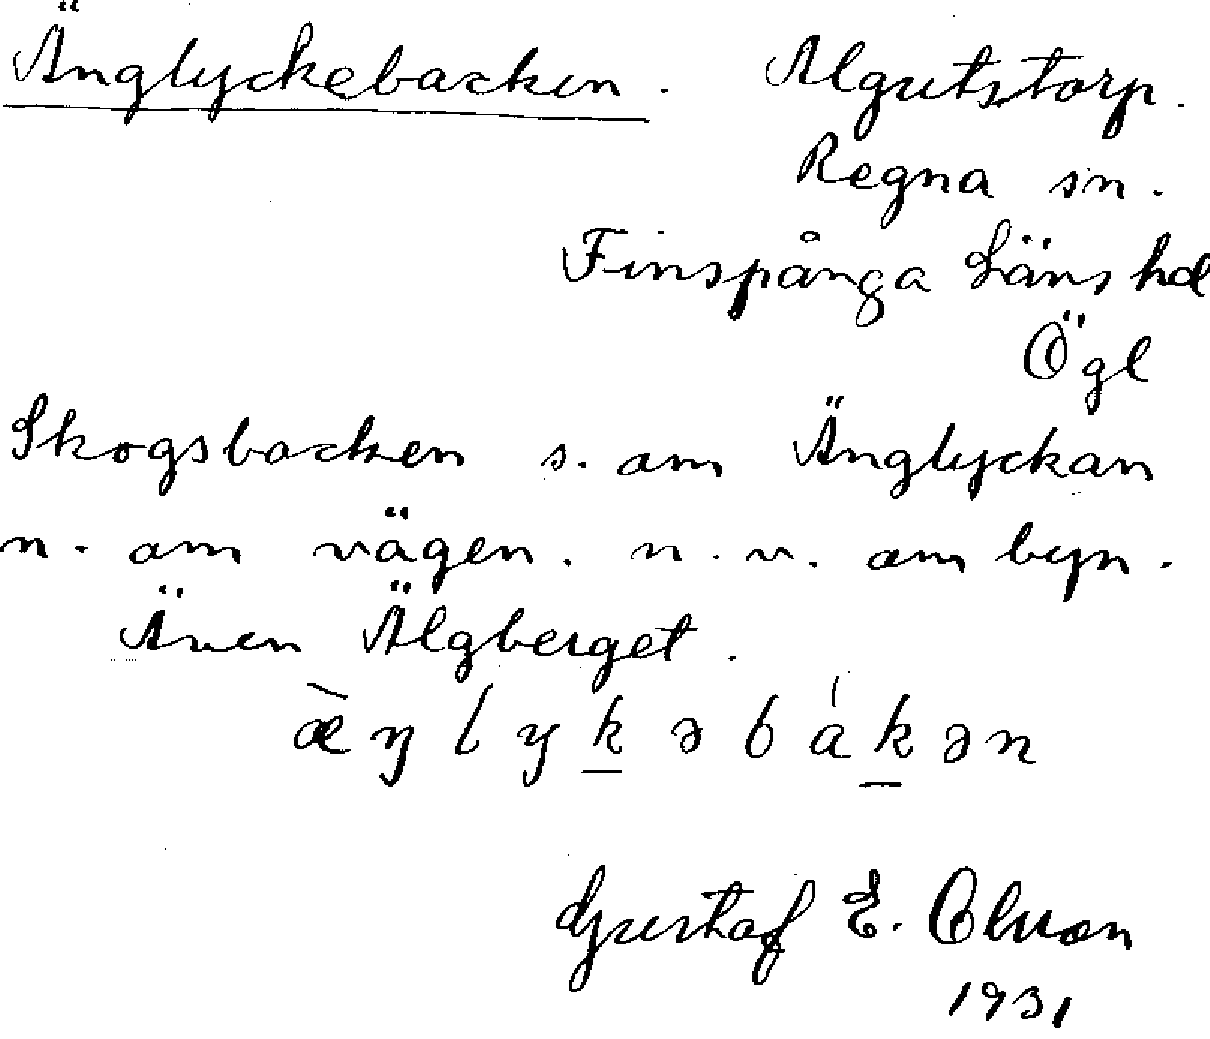 Änglyckebacken. Algutstorp.
Regna sn.
Finspånga Läns hd
Ögl
Skogsbacken s. om Änglyckan
n. om vägen. n.v. om byn.
Även Älgberget.
æ̀ŋlyk̲əbákəṉ
Gustaf E. Olsson
1931